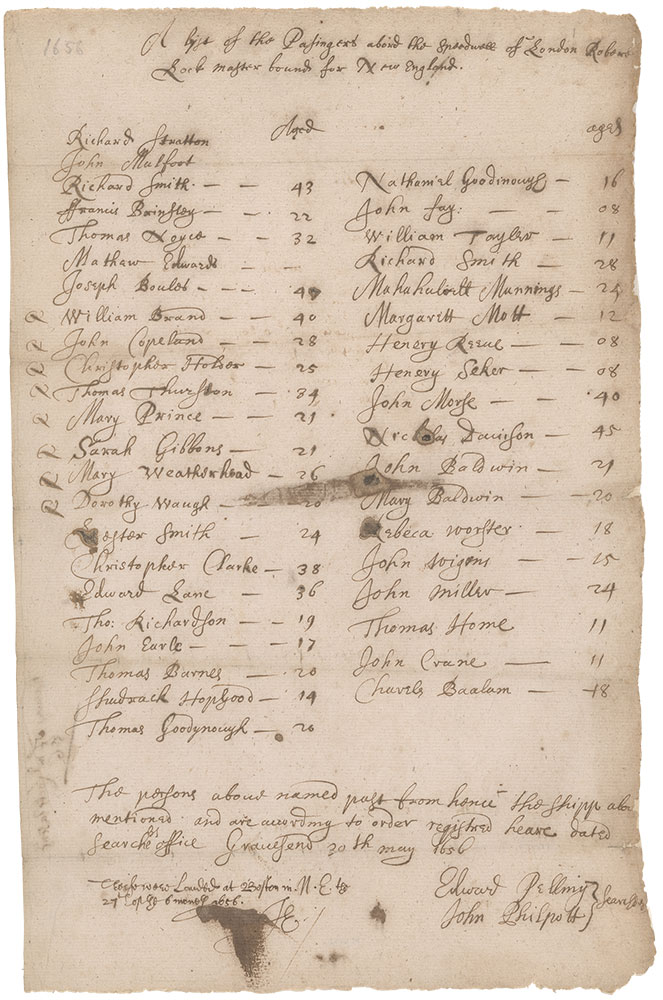 1656
A lyst of the Pasingers abord the speedwell of London Robert
Lock master bound for New England.
Aged
Richard Stratton
John Mulfoot
Richard Smith — — 43
ffrancis Brinsley — — 22
Thomas Noyce — — 32
Mathew Edwards — —
Joseph Boules — —
R William Brand — — 40
R John Copeland — — 28
R Christopher Holder — 25
R Thomas Thurston — 34
R Mary Prince — — 21
R Sarah Gibbons — — 21
R Mary Weatherhead — 26
R Dorothy Waugh — — 20
Lester Smith — 24
Christopher Clarke — 38
Edward Lane — 36
Tho: Richardson — — 19
John Earle — — 17
Thomas Barnes — 20
Shudrack Hopgood — 14
Thomas Goodynough — 20
aged
Natham'el Goodinough — 16
John fay: — — 08
William Tayler — 11
Richard Smith — 28
Muhuhulett Munnings — 24
Margarett Mott — 12
Henery Reeve — 08
Henery Seker — 08
John Morse — 40
Nickolas Davison — 45
John Baldwin — 21
Mary Baldwin — 20
Rebeca worster — 18
John wigins — 15
John miller — 24
Thomas Home 11
John Crane — 11
Charels Baalam — 18
The persons aboue named past from hence the shipp abo
mentioned and are according to order registred heare dated
Searchers office Gravesend 20th may 1656
Edward Pelling
John Philpott } Searchers
were Landed at Boston in N. E. the
27th of the 6 month 1656.